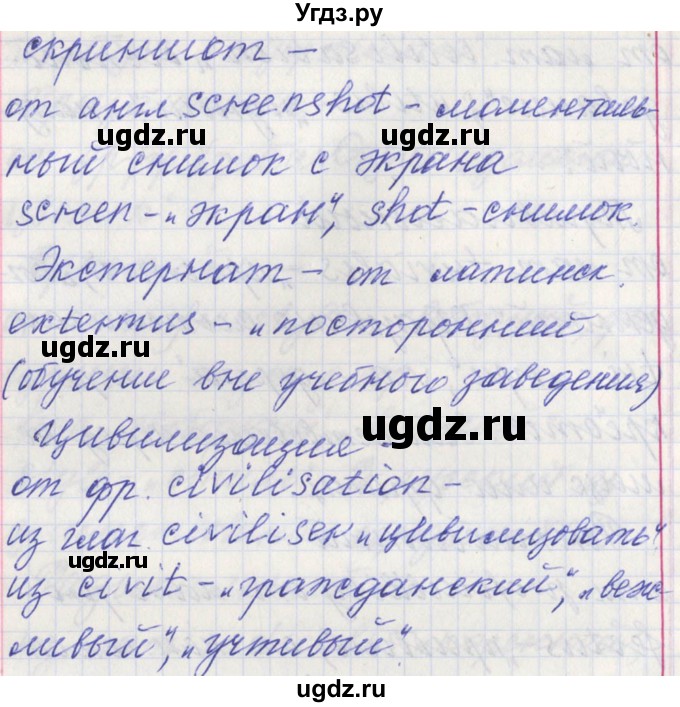 Угдз.ру
скриншот –
от англ. screenshot – моменталь-
ugdz.ru ugdz.ru
ный снимок с экрана
screen – „экран“, shot – снимок.
Экстернат – от латинск.
externus – „посторонний
ugdz.ru
(обучение вне учебного заведения)
Цивилизация –
ugdz.ru
от фр. civilisation –
из глаг. civiliser „цивилизовать“.
ugdz.ru
из civil – „гражданский“, „веж-
ливый“, „учтивый“.
ugdz.ru